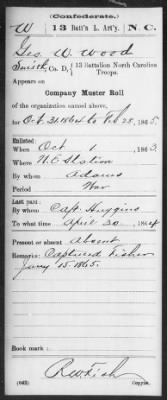 (Confederate.)
W 13 Batt'n L. Art'y. N C.
Geo W. Wood
Smith, Co. D, 13 Battalion North Carolina Troops.
Appears on
Company Muster Roll
of the organization named above,
for Oct. 31 1864 to Feb 28, 1865
Enlisted:
When Oct 1, 1863
Where N. C. Station
By whom Adams
Period War
Last paid:
By whom Capt. Huggins
To what time April 30, 1864
Present or absent Absent
Remarks: Captured Fisher
Jany 15 1865.
Book mark:
R W Fish
(642) Copyist.